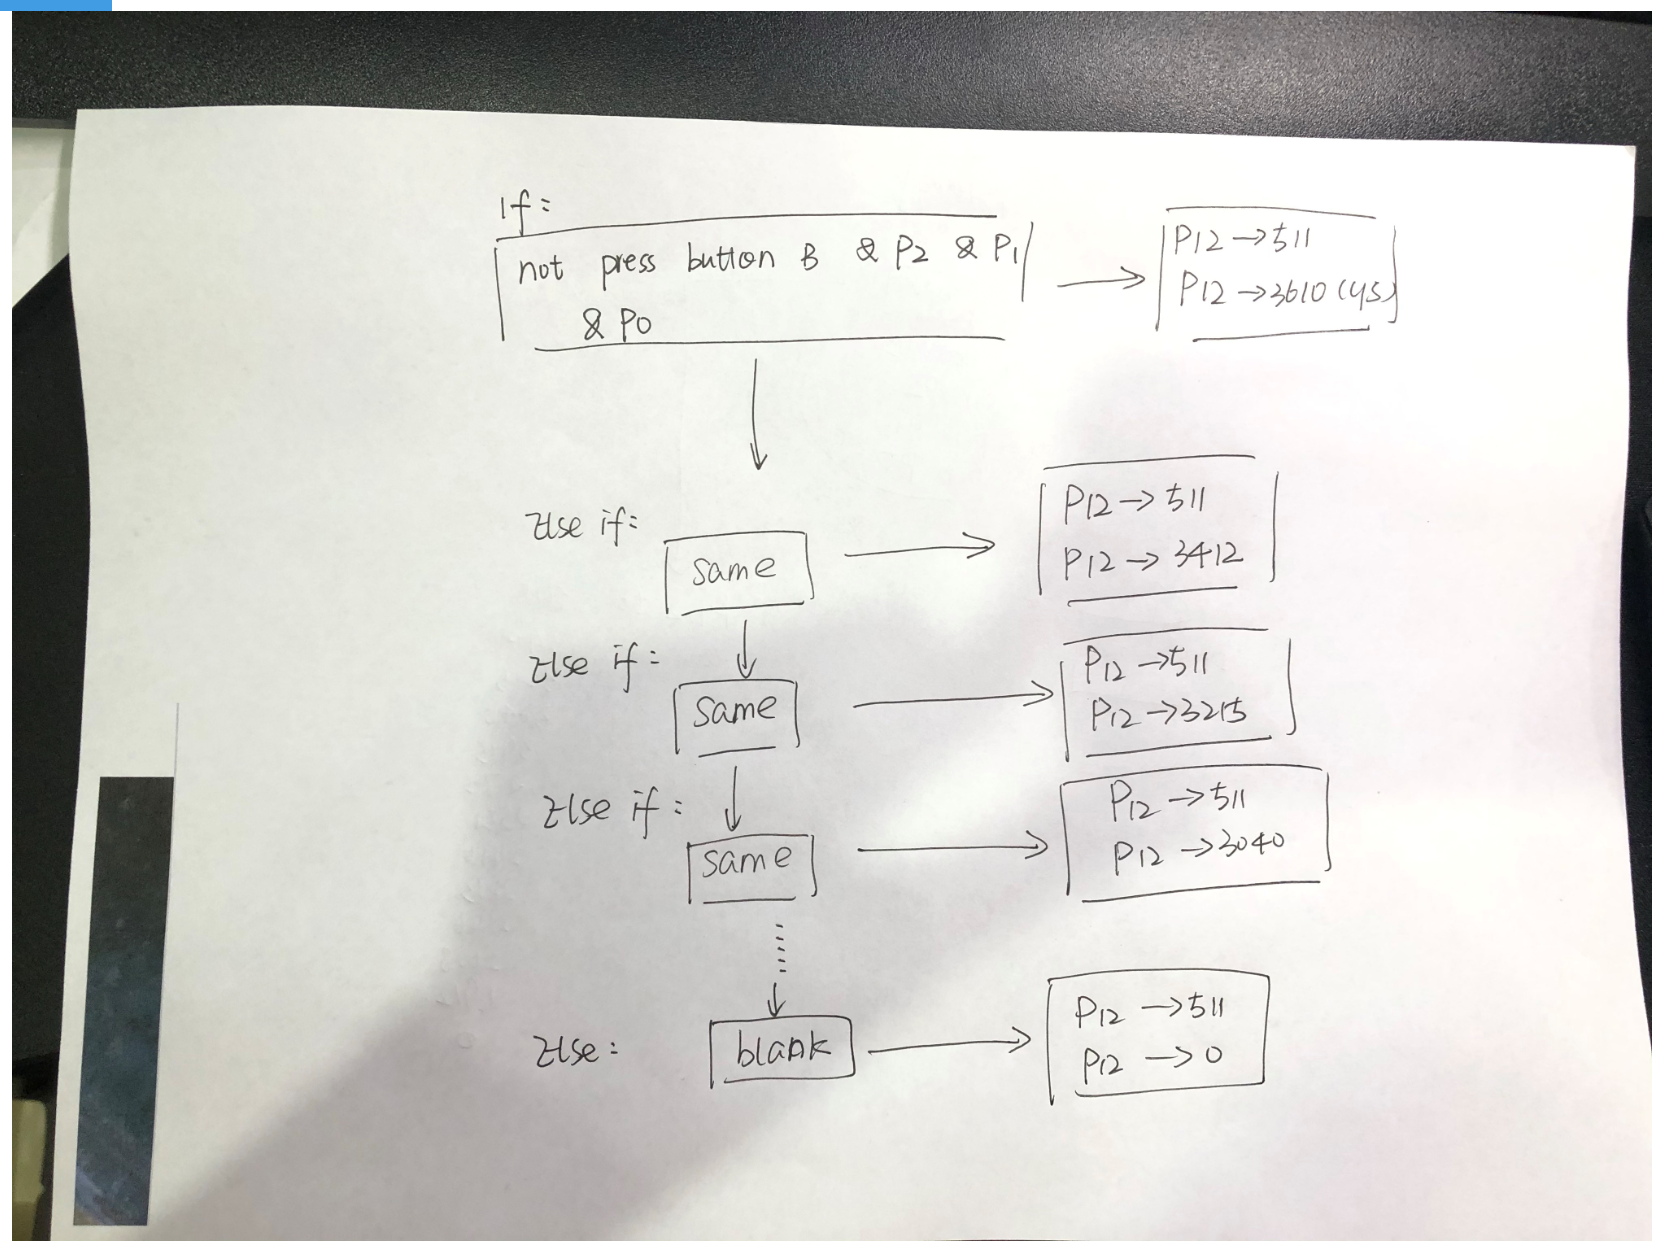 If:
not press button B & P2 & P1
& P0
P12 → 511
P12 → 3610 (us)
Else if:
same
P12 → 511
P12 → 3412
Else if:
same
P12 → 511
P12 → 3215
Else if:
same
P12 → 511
P12 → 3040
Else:
blank
P12 → 511
P12 → 0